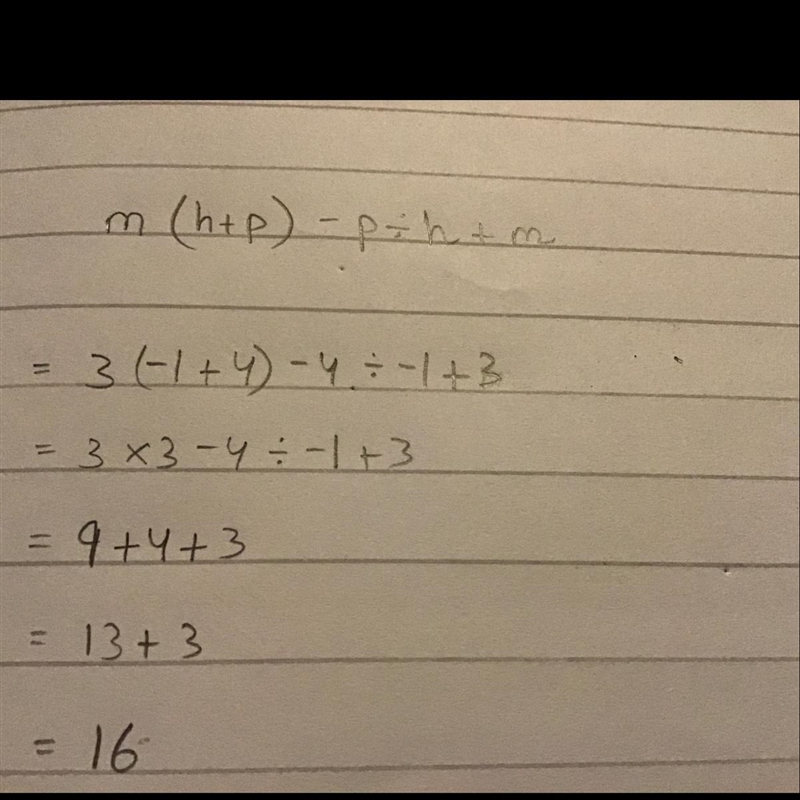 m (h+p) - p ÷ h + m
= 3 (-1 + 4) - 4 ÷ -1 + 3
= 3 × 3 - 4 ÷ -1 + 3
= 9 + 4 + 3
= 13 + 3
= 16